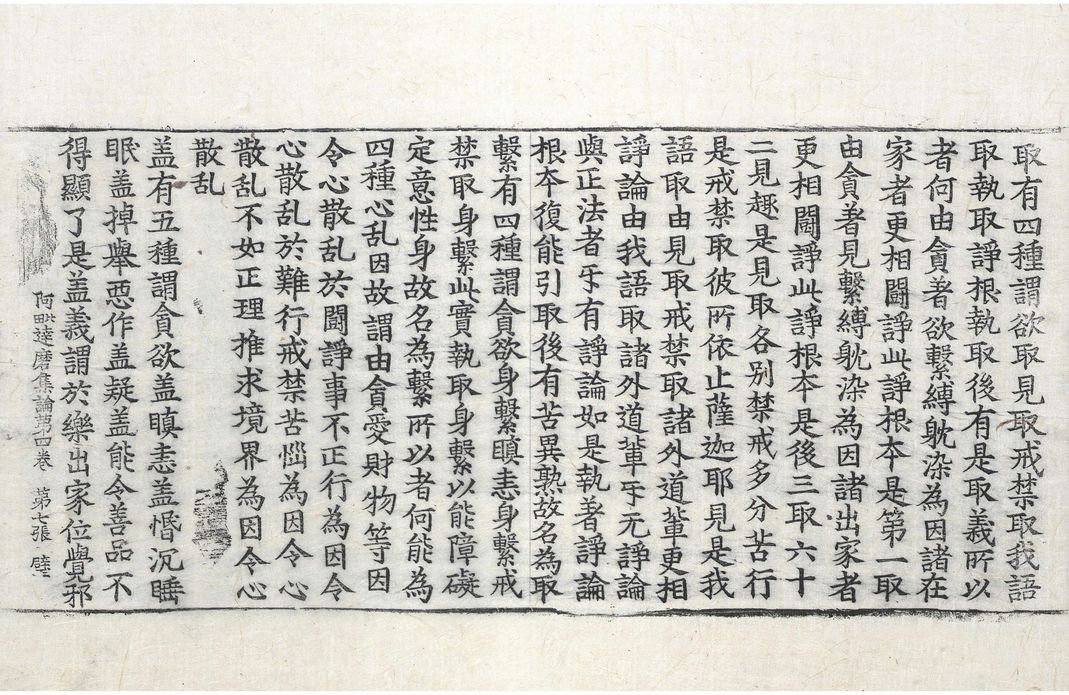 取有四種謂欲取見取戒禁取我語
取執取諍根執取後有是取義所以
者何由貪著欲繫縛躭染為因諸在
家者更相鬪諍此諍根本是第一取
由貪著見繫縛躭染為因諸出家者
更相鬪諍此諍根本是後三取六十
二見趣是見取各別禁戒多分苦行
是戒禁取彼所依止薩迦耶見是我
語取由見取戒禁取諸外道輩更相
諍論由我語取諸外道輩㸦无諍論
與正法者㸦有諍論如是執著諍論
根本復能引取後有苦異熟故名為取
繫有四種謂貪欲身繫瞋恚身繫戒
禁取身繫此實執取身繫以能障礙
定意性身故名為繫所以者何能為
四種心乱因故謂由貪愛財物等因
令心散乱於鬪諍事不正行為因令
心散乱於難行戒禁苦惱為因令心
散乱不如正理推求境界為因令心
散乱
盖有五種謂貪欲盖瞋恚盖惛沉睡
眠盖掉舉惡作盖疑盖能令善品不
得顯了是盖義謂於樂出家位覺邪
阿毗達磨集論第四卷 第七張 壁